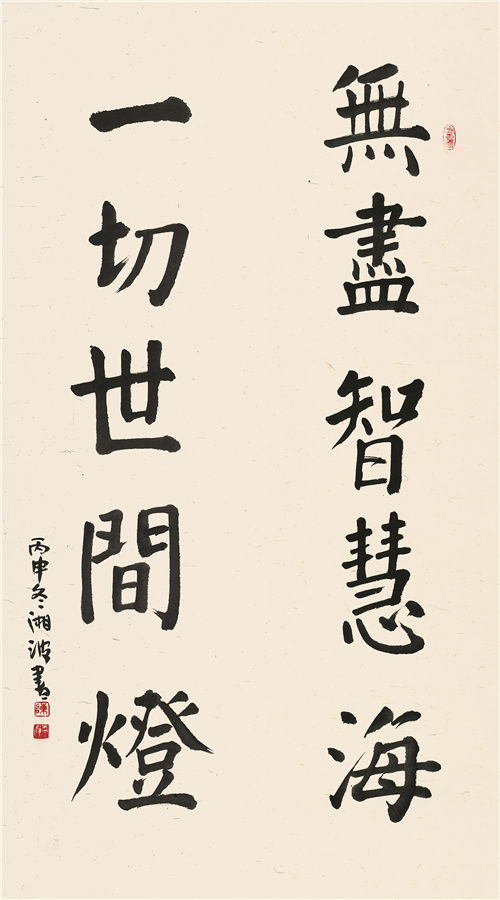 無盡智慧海
一切世間燈
丙申冬湘波書